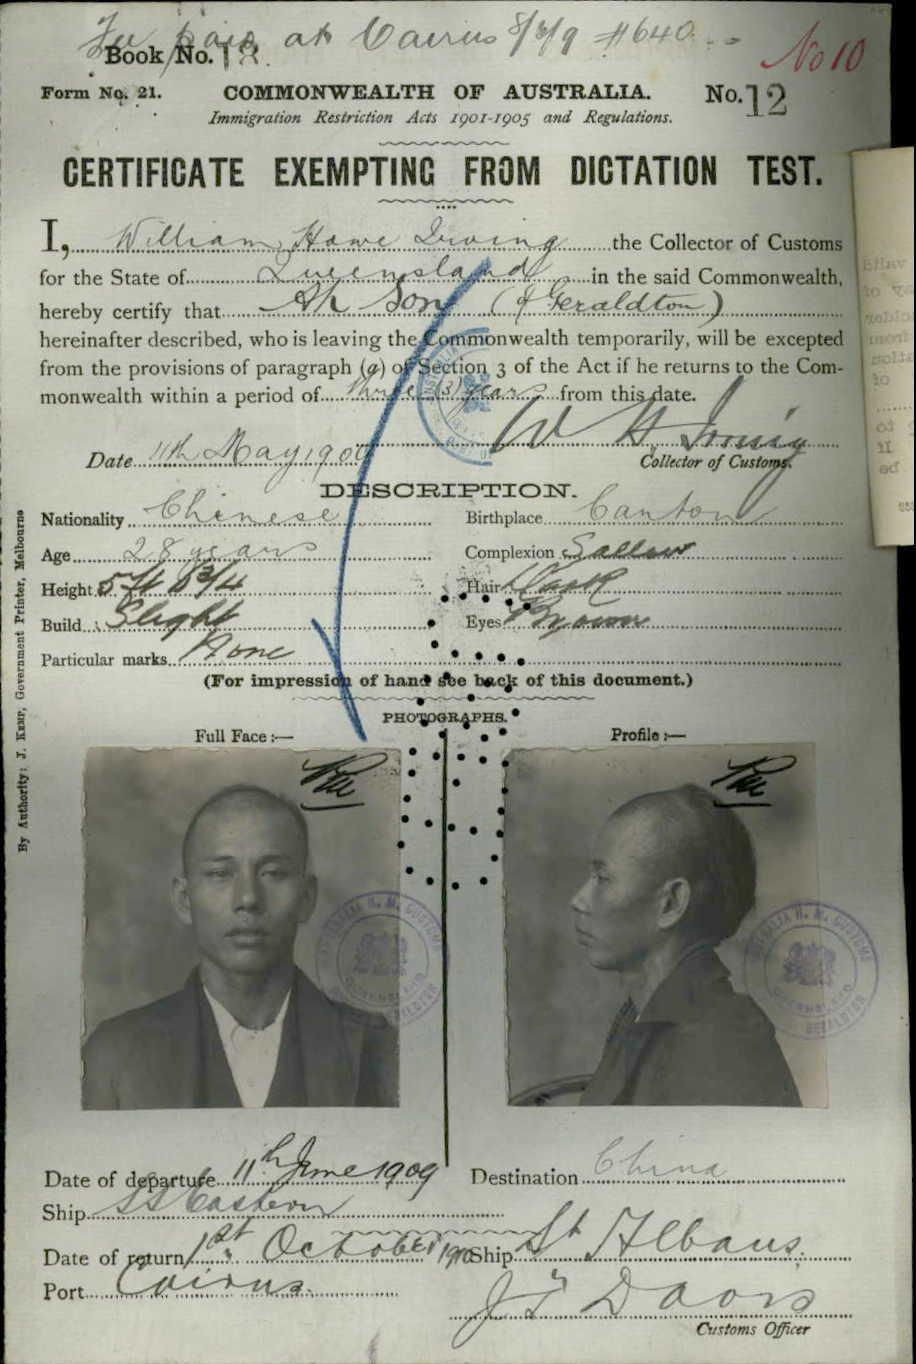 Fee paid at Cairns 8/6/9 #640
Book No. 13.
No 10
Form No. 21.
COMMONWEALTH OF AUSTRALIA.
No. 12
Immigration Restriction Acts 1901-1905 and Regulations.
CERTIFICATE EXEMPTING FROM DICTATION TEST.
I, William Howe Irving the Collector of Customs
for the State of Queensland in the said Commonwealth,
hereby certify that Ah Son (of Geraldton)
hereinafter described, who is leaving the Commonwealth temporarily, will be excepted
from the provisions of paragraph (a) of Section 3 of the Act if he returns to the Com-
monwealth within a period of three (3) years from this date.
W H Irving
Date 11th May 1909
Collector of Customs.
DESCRIPTION.
Nationality Chinese
Birthplace Canton
Age 28 years
Complexion Sallow
Height 5 ft 6 3/4
Hair Dark
Build Slight
Eyes Brown
Particular marks None
(For impression of hand see back of this document.)
PHOTOGRAPHS.
Full Face :—
Profile :—
By Authority: J. Kemp, Government Printer, Melbourne
Date of departure 11th June 1909
Destination China
Ship SS Eastern
Date of return 1st October 1910
Ship St Albans
Port Cairns.
Customs Officer